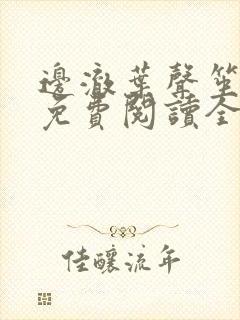 邊澈葉聲笙
免費閱讀全
佳釀流年